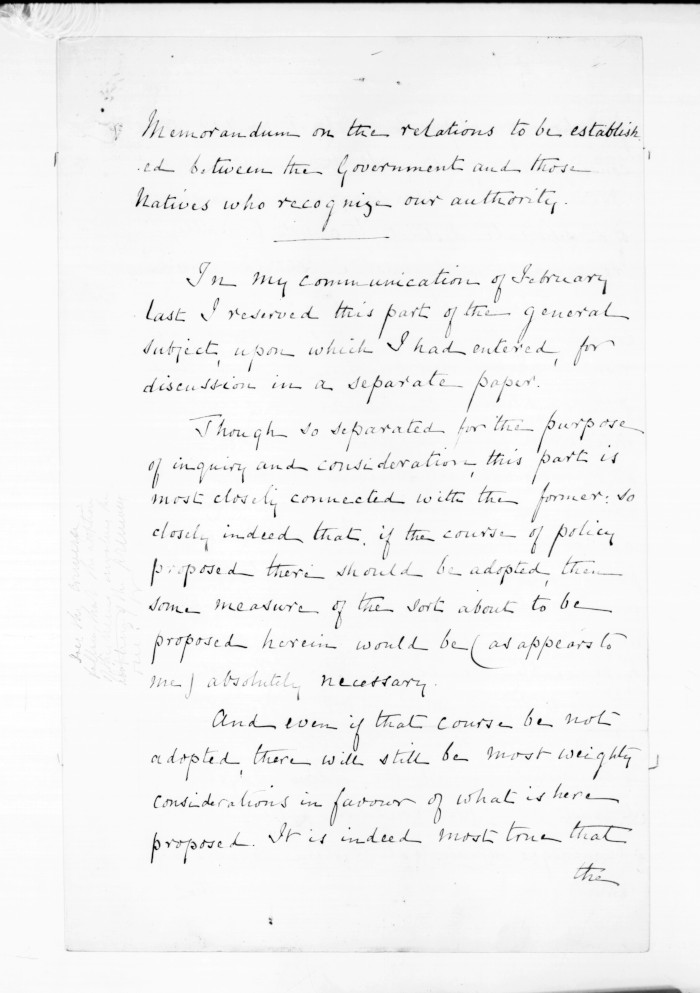 Memorandum on the relations to be establish
-ed between the Government and those
Natives who recognize our authority.
In my communication of February
last I reserved this part of the general
subject, upon which I had entered, for
discussion in a separate paper.
Though so separated for the purpose
of inquiry and consideration, this part is
most closely connected with the former: so
closely indeed that, if the course of policy
proposed there should be adopted, then
some measure of the sort about to be
proposed herein would be (as appears to
me) absolutely necessary.
And even if that course be not
adopted, there will still be most weighty
considerations in favour of what is here
proposed. It is indeed most true that
the